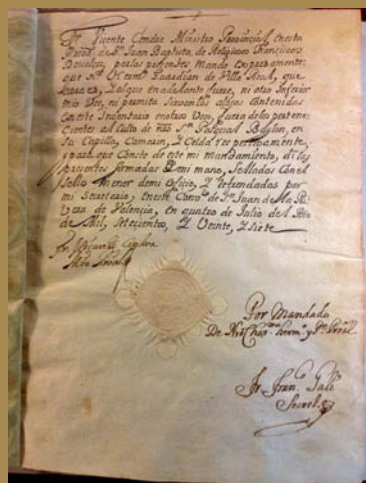 Fr. Vicente Condra Ministro Provincial, en esta
Prova. de Sn. Juan Baptista, de Religiosos Franciscos
Descalços, por las presentes Mando expresamente
que N. Guardian de Villa Real, que
es, y al que en adelante fuere, ni otro Inferior
mio Dre, ni permita alajas Contenidas
en este Inventario en otro Uso, fuera de los pertene-
cientes al Culto de nro. Sn. Pasqual Baylon, en
su Capilla, Camarin, y Celda
y para que Conste de este mi mandamiento, di las
presentes firmadas de mi mano, Selladas Con el
Sello Menor de mi Oficio, y refrendadas por
mi Secretario, en este Convto. de Sn. Juan de la Ri-
vera de Valencia, en quatro de Julio del Año
de Mil, Setecientos, y Veinte, y Siete
Fr. Vicente Condra
Mro. Provl.
Por Mandado
De Nro. Charmo. hermo. y Pe. Provl.
Fr. Franco.
Secreto.